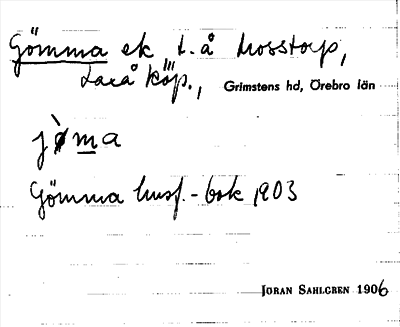 Gömma ek t. å Mosstorp,
Laxå köp., Grimstens hd, Örebro län
jø̀ma
Gömma husf.-bok 1903
JÖRAN SAHLGREN 1906